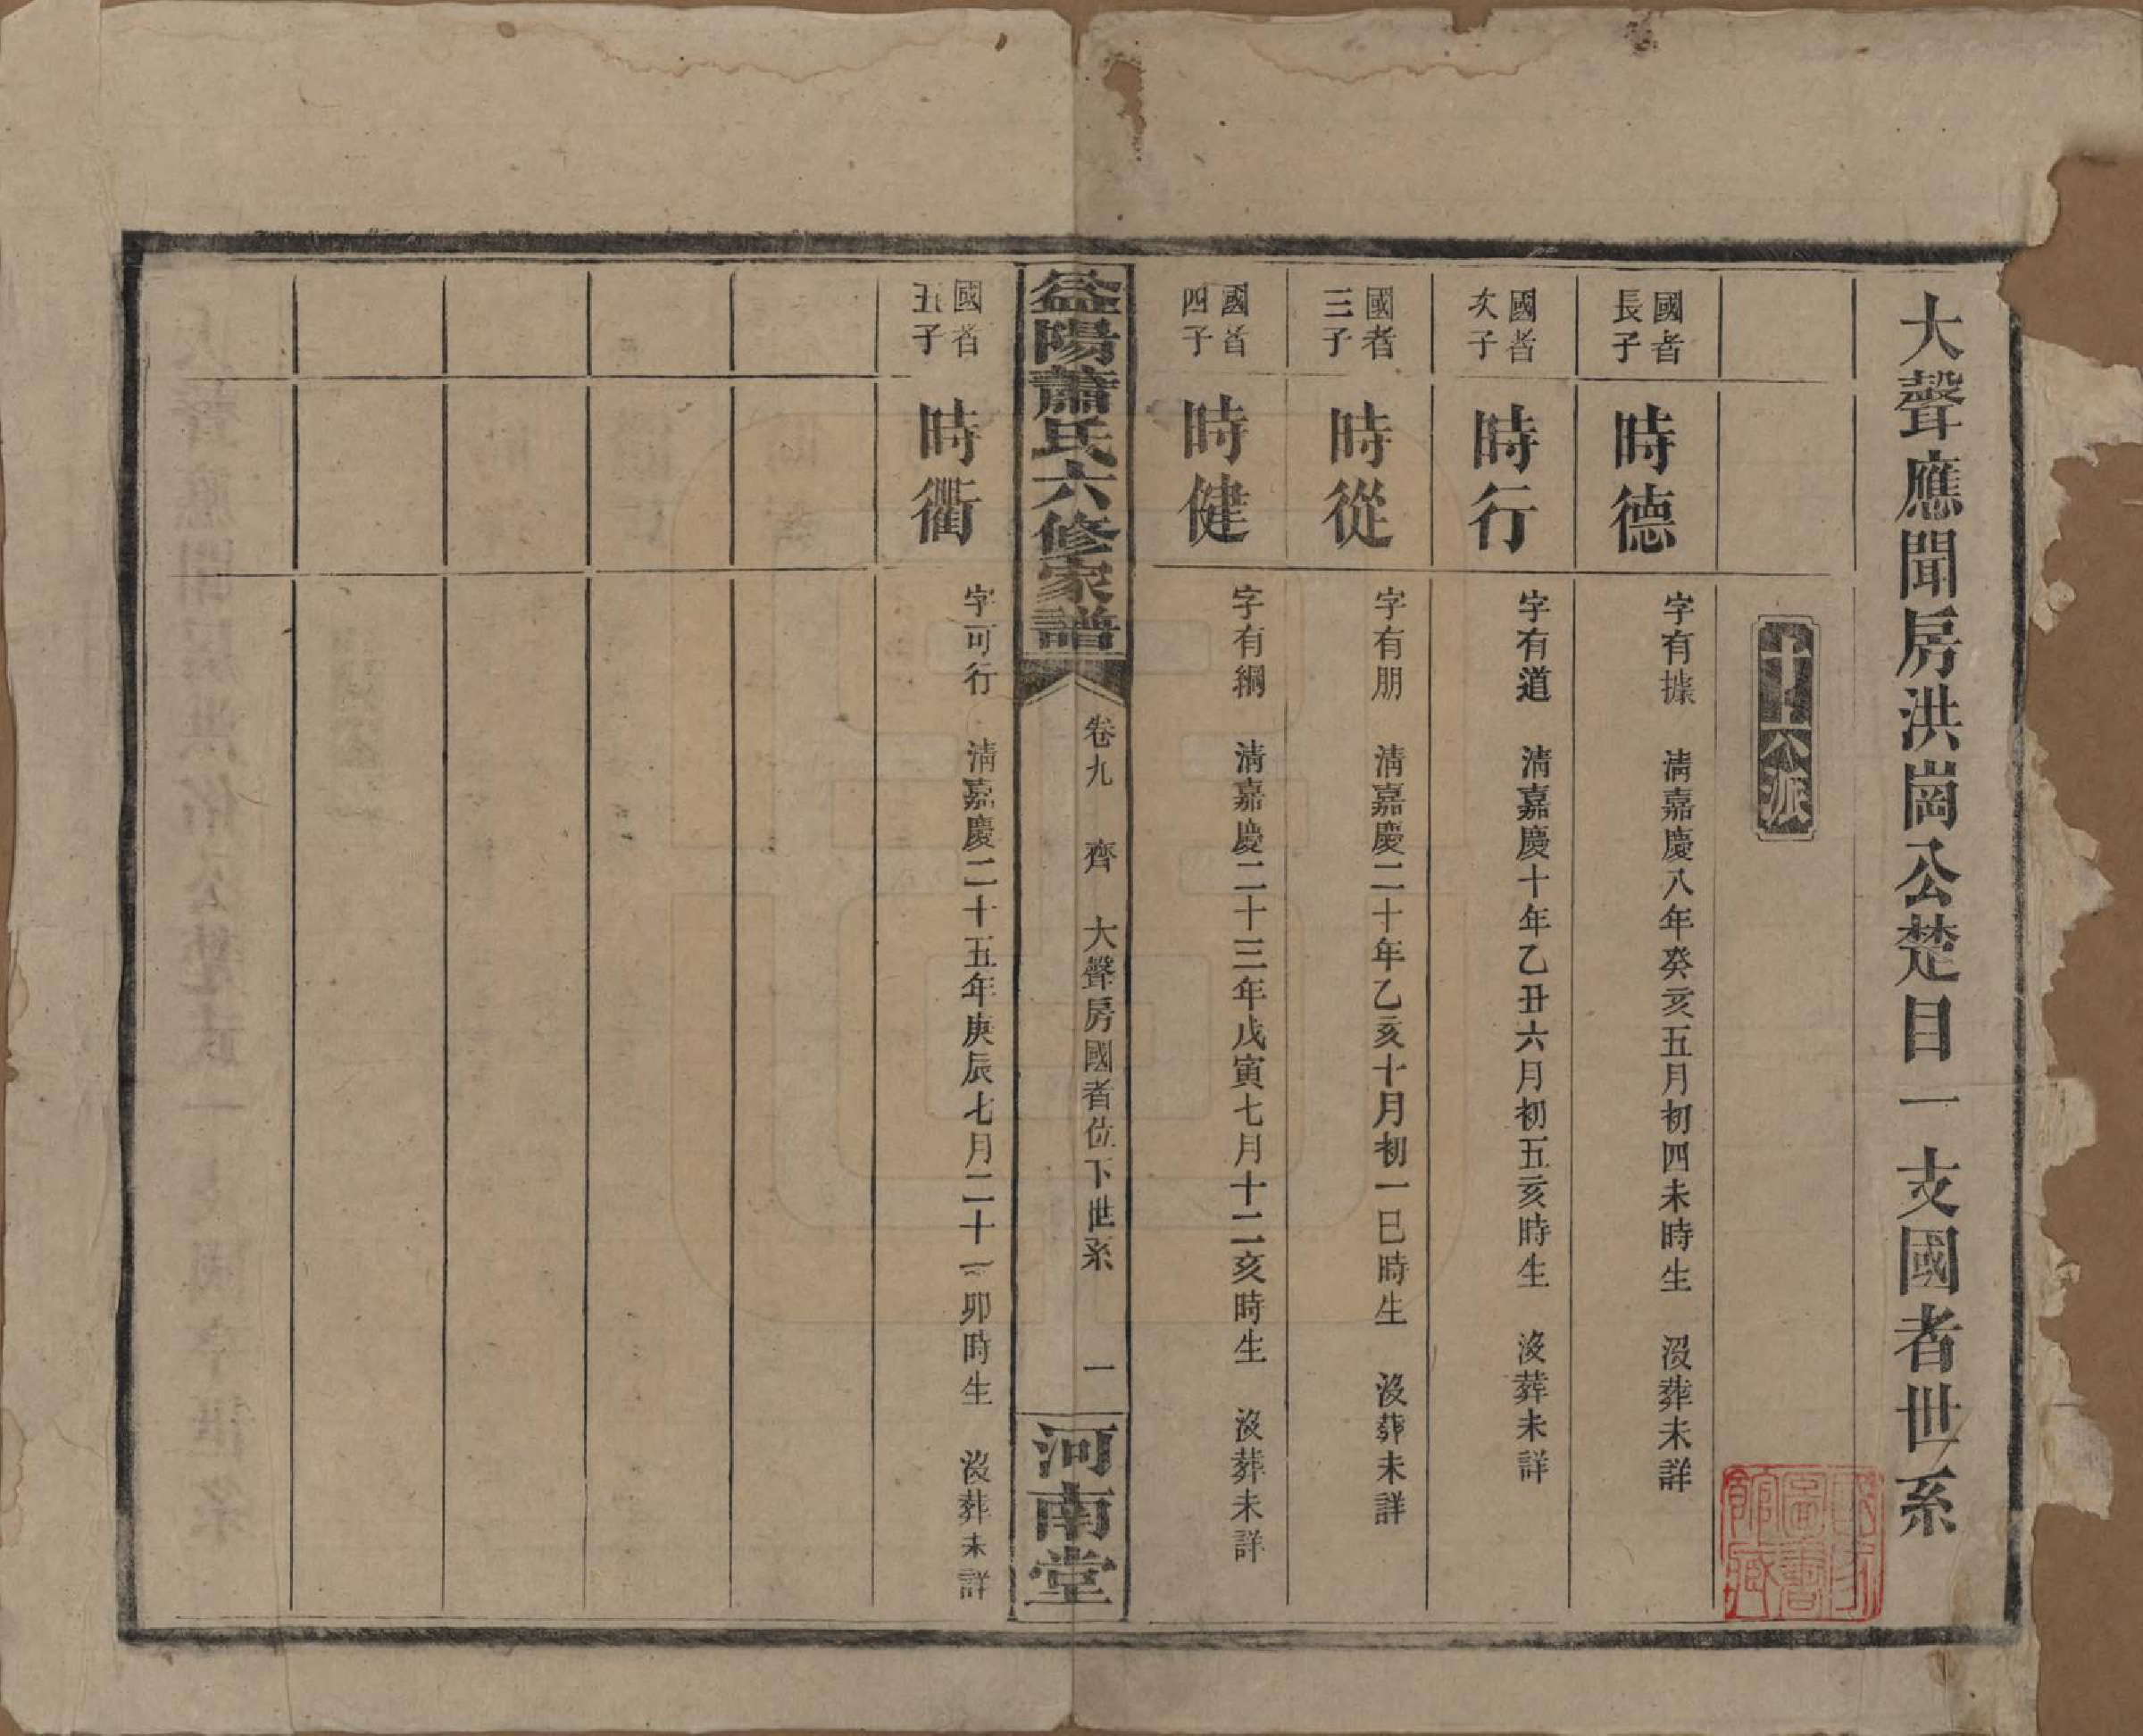 大聲應聞房洪崗公楚目一支國者世系
十六派
國者長子
時德
字有據 清嘉慶八年癸亥五月初四未時生 沒葬未詳
國者次子
時行
字有道 清嘉慶十年乙丑六月初五亥時生 沒葬未詳
國者三子
時從
字有朋 清嘉慶二十年乙亥十月初一巳時生 沒葬未詳
國者四子
時健
字有綱 清嘉慶二十三年戊寅七月十二亥時生 沒葬未詳
益陽蕭氏六修家譜
卷九 齊 大聲房國者位下世系 一
河南堂
國者五子
時衢
字可行 清嘉慶二十五年庚辰七月二十一卯時生 沒葬未詳
國家圖書館藏